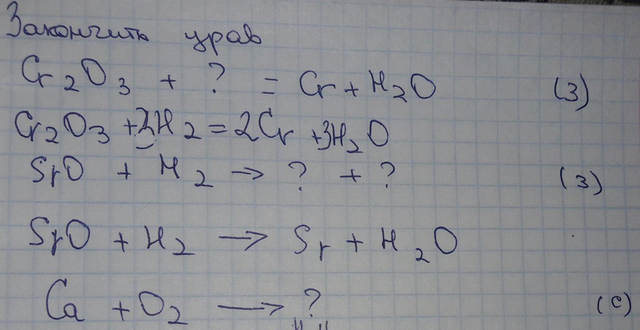 Закончить урав
Cr2O3 + ? = Cr + H2O (З)
Cr2O3 + 3H2 = 2Cr + 3H2O
SrO + H2 → ? + ? (З)
SrO + H2 → Sr + H2O
Ca + O2 → ? (С)